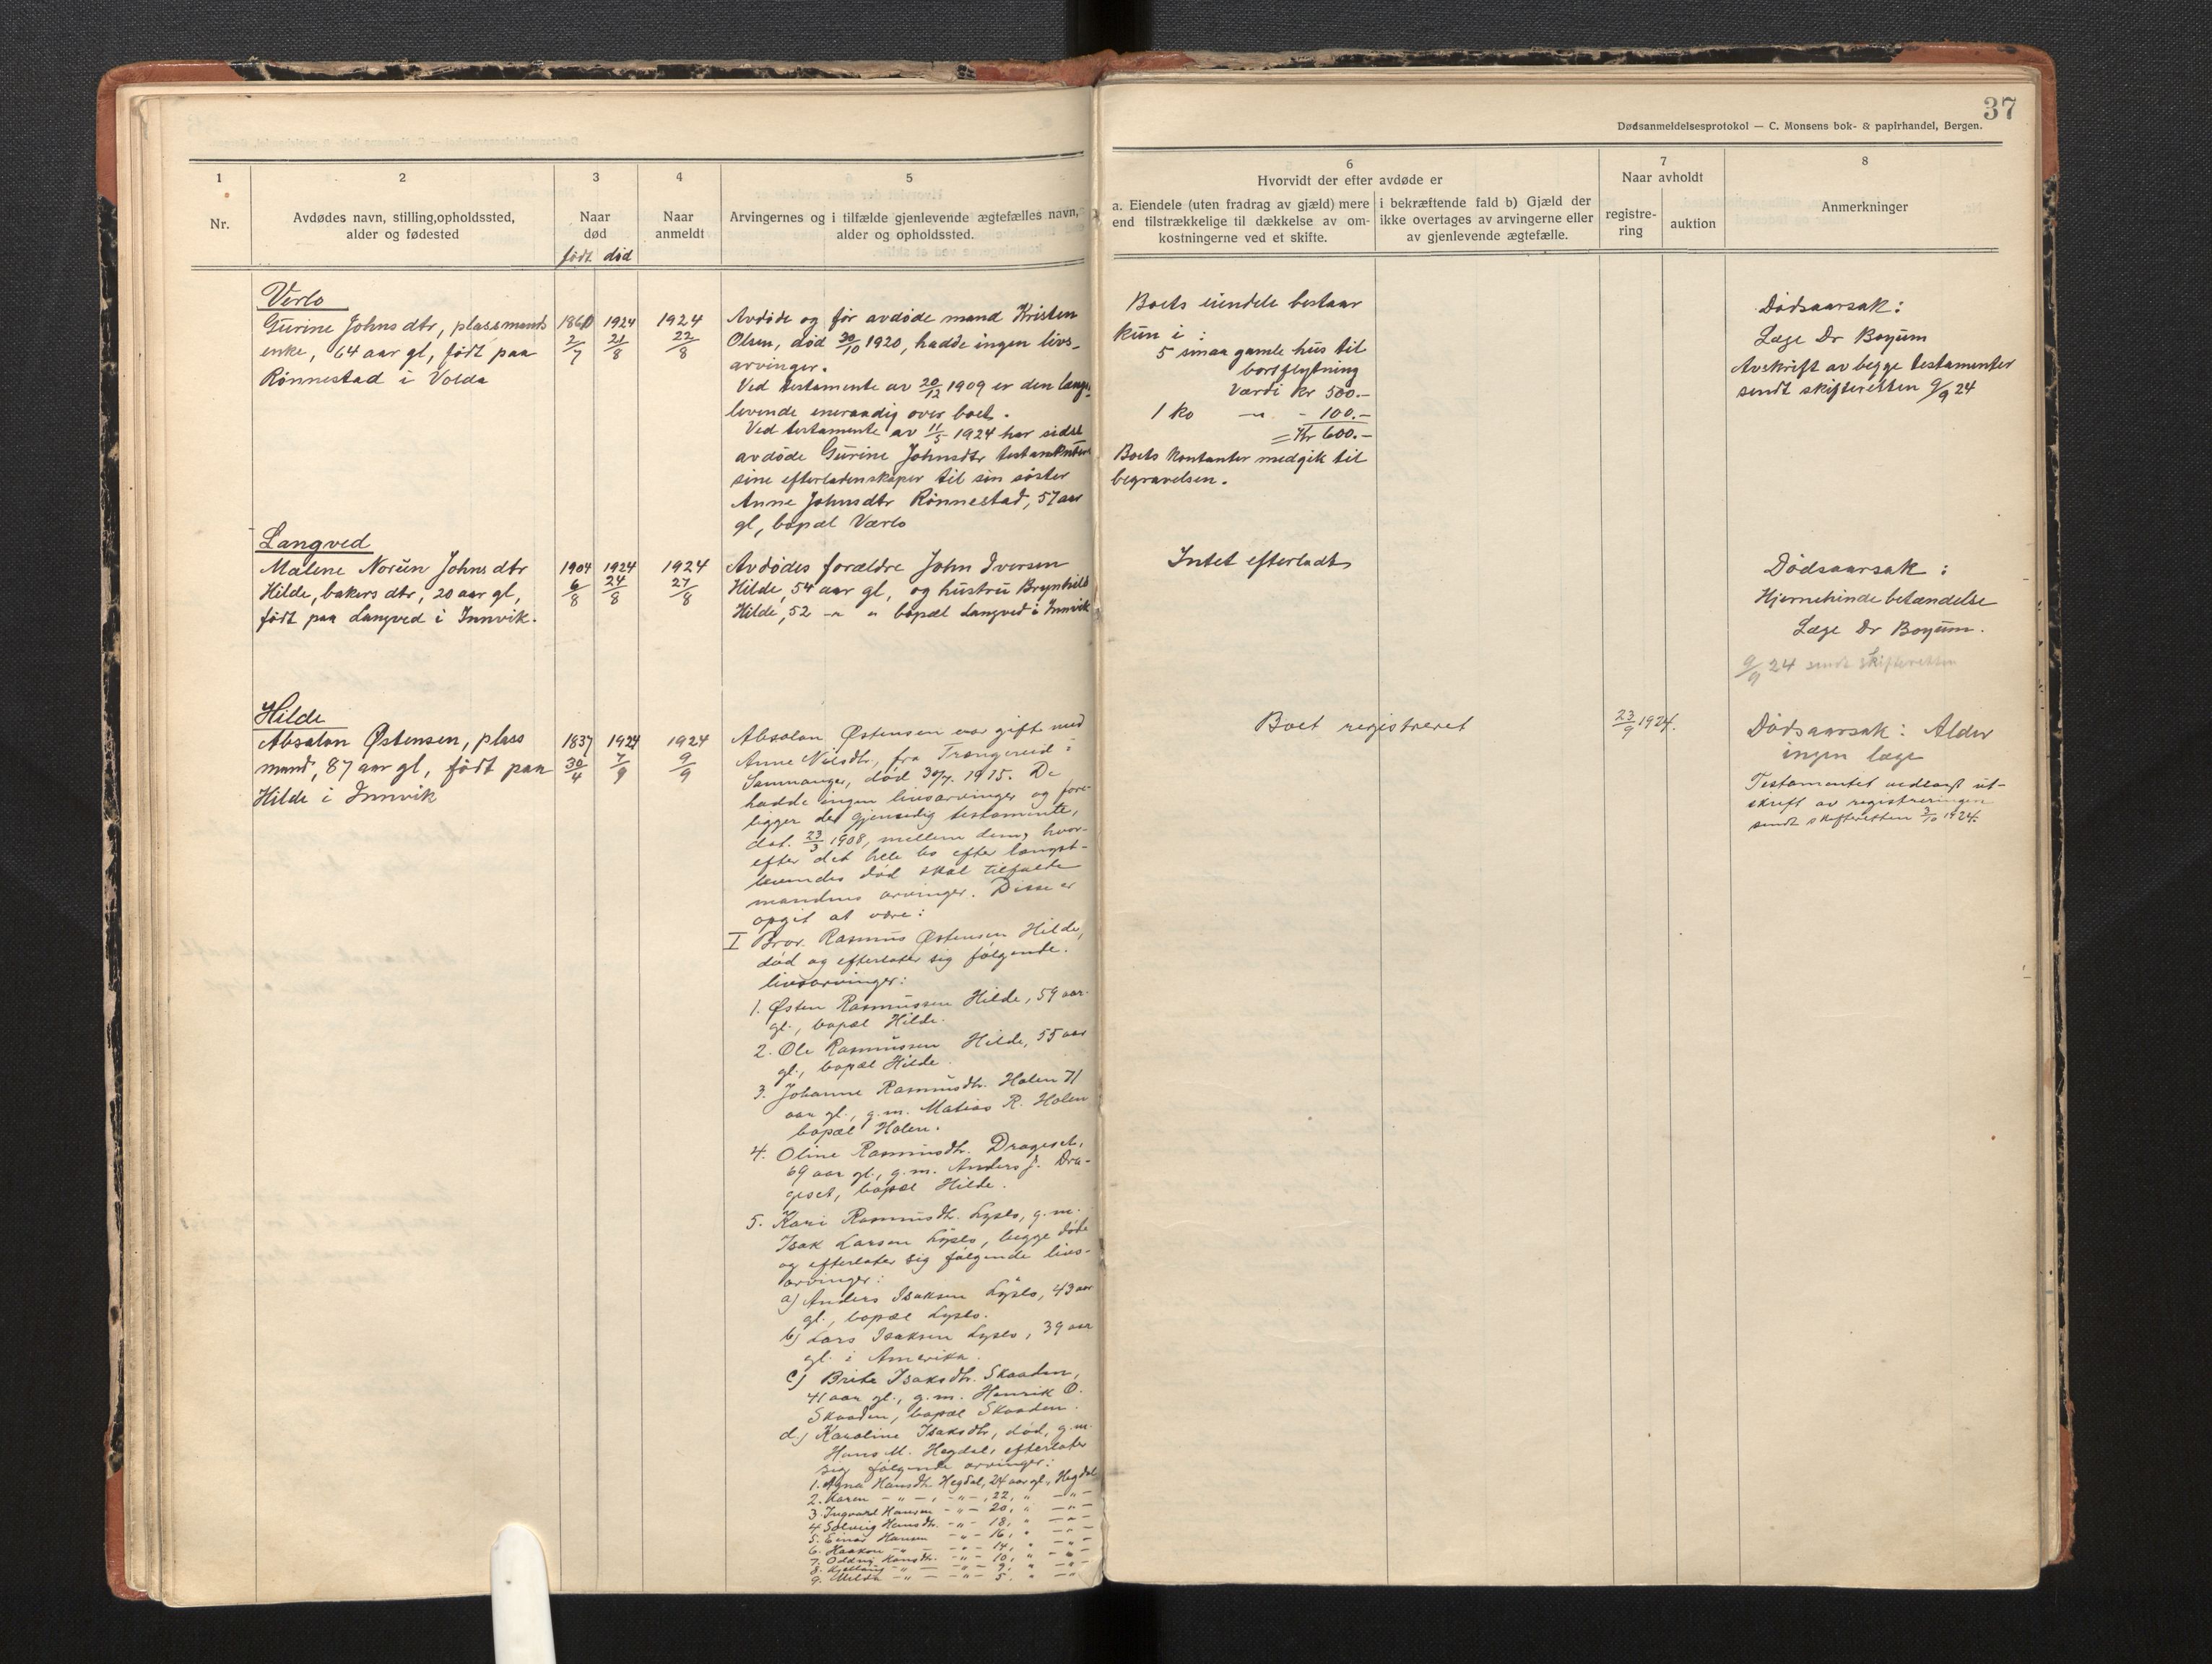 37
Dødsanmeldelsesprotokol — C. Monsens bok- & papirhandel, Bergen.
1
Nr.
2
Avdødes navn, stilling, opholdssted,
alder og fødested
3
Naar
død
født død
4
Naar
anmeldt
5
Arvingernes og i tilfælde gjenlevende ægtefælles navn,
alder og opholdssted.
6
Hvorvidt der efter avdøde er
a. Eiendele (uten fradrag av gjæld) mere
end tilstrækkelige til dækkelse av om-
kostningerne ved et skifte.
i bekræftende fald b) Gjæld der
ikke overtages av arvingerne eller
av gjenlevende ægtefælle.
7
Naar avholdt
registre-
ring
auktion
8
Anmerkninger
Verlo
Gurine Johnsdtr, plassmands
enke, 64 aar gl, født paa
Rønnestad i Volda
1860
2/7
1924
21/8
1924
22/8
Avdøde og før avdøde mand Kristen
Olsen, død 30/10 1920, hadde ingen livs-
arvinger.
Ved testamente av 20/12 1909 er den længst
levende eneraadig over boet.
Ved testamente av 11/5 1924 har sidst
avdøde Gurine Johnsdtr testamentert
sine efterladenskaper til sin søster
Anne Johnsdtr Rønnestad, 57 aar
gl, bopæl Værlo
Boets eiendele bestaar
kun i:
5 smaa gamle hus til
bortflytning
Værdi kr 500.-
1 ko -"- - 100.-
= Kr 600.-
Boets kontanter medgik til
begravelsen.
Dødsaarsak:
Læge Dr Bøyum
Avskrift av begge testamenter
sendt skifteretten 9/9 24
Langved
Malene Norun Johnsdtr
Hilde, bakers dtr, 20 aar gl,
født paa Langved i Innvik.
1904
6/8
1924
24/8
1924
27/8
Avdødes forældre John Iversen
Hilde, 54 aar gl, og hustru Brynhild
Hilde, 52 -"- " bopæl Langved i Innvik
Intet efterladt
Dødsaarsak:
Hjernehinde betændelse
Læge Dr Bøyum.
9/9 24 sendt skifteretten
Hilde
Absalon Østensen, plass
mand, 87 aar gl, født paa
Hilde i Innvik
1837
30/4
1924
7/9
1924
9/9
Absalon Østensen var gift med
Anne Nilsdtr, fra Trængereid i
Samnanger, død 30/7. 1915. De
hadde ingen livsarvinger og fore-
ligger der gjensidig testamente,
dat. 23/3 1908, mellem dem, hvor-
efter det hele bo efter længst-
levendes død skal tilfalde
mandens arvinger. Disse er
opgit at være:
I Bror Rasmus Østensen Hilde,
død og efterlater sig følgende
livsarvinger:
1. Østen Rasmussen Hilde, 59 aar
gl., bopæl Hilde.
2. Ole Rasmussen Hilde, 55 aar
gl., bopæl Hilde
3. Johanne Rasmusdtr. Holen 71
aar gl., g.m. Matias R. Holen
bopæl Holen.
4. Oline Rasmusdtr. Drageset,
69 aar gl., g.m. Anders J. Dra-
geset, bopæl Hilde.
5. Kari Rasmusdtr. Lyslo, g.m.
Isak Larsen Lyslo, begge døde
og efterlater sig følgende livs-
arvinger:
a) Anders Isaksen Lyslo, 43 aar
gl., bopæl Lyslo.
b) Lars Isaksen Lyslo, 39 aar
gl. i Amerika.
c) Brite Isaksdtr. Skaaden,
41 aar gl., g.m. Henrik O.
Skaaden, bopæl Skaaden.
d.) Karoline Isaksdtr, død, g.m.
Hans M. Hegdal, efterlater
sig følgende arvinger:
1. Agna Hansdtr. Hegdal, 24 aar gl., Hegdal
2. Karen -"- -, -"-, 22, " -"-
3. Ingvard Hansen -"- 20, " -"-
4. Solveig Hansdtr. -"- 18, " -"-
5. Einar Hansen -"- 16, " -"-
6. Haakon -"- -"- 14, " -"-
7. Oddny Hansdtr. -"- 10, " -"-
8. -"- — -"- 9, " -"-
9. Milda -"- — -"- 5. " -"-
Boet registreret
23/9 1924.
Dødsaarsak: Alder
ingen læge
Testamentet vedlagt ut-
skrift av registreringen
sendt skifteretten 3/10 1924.